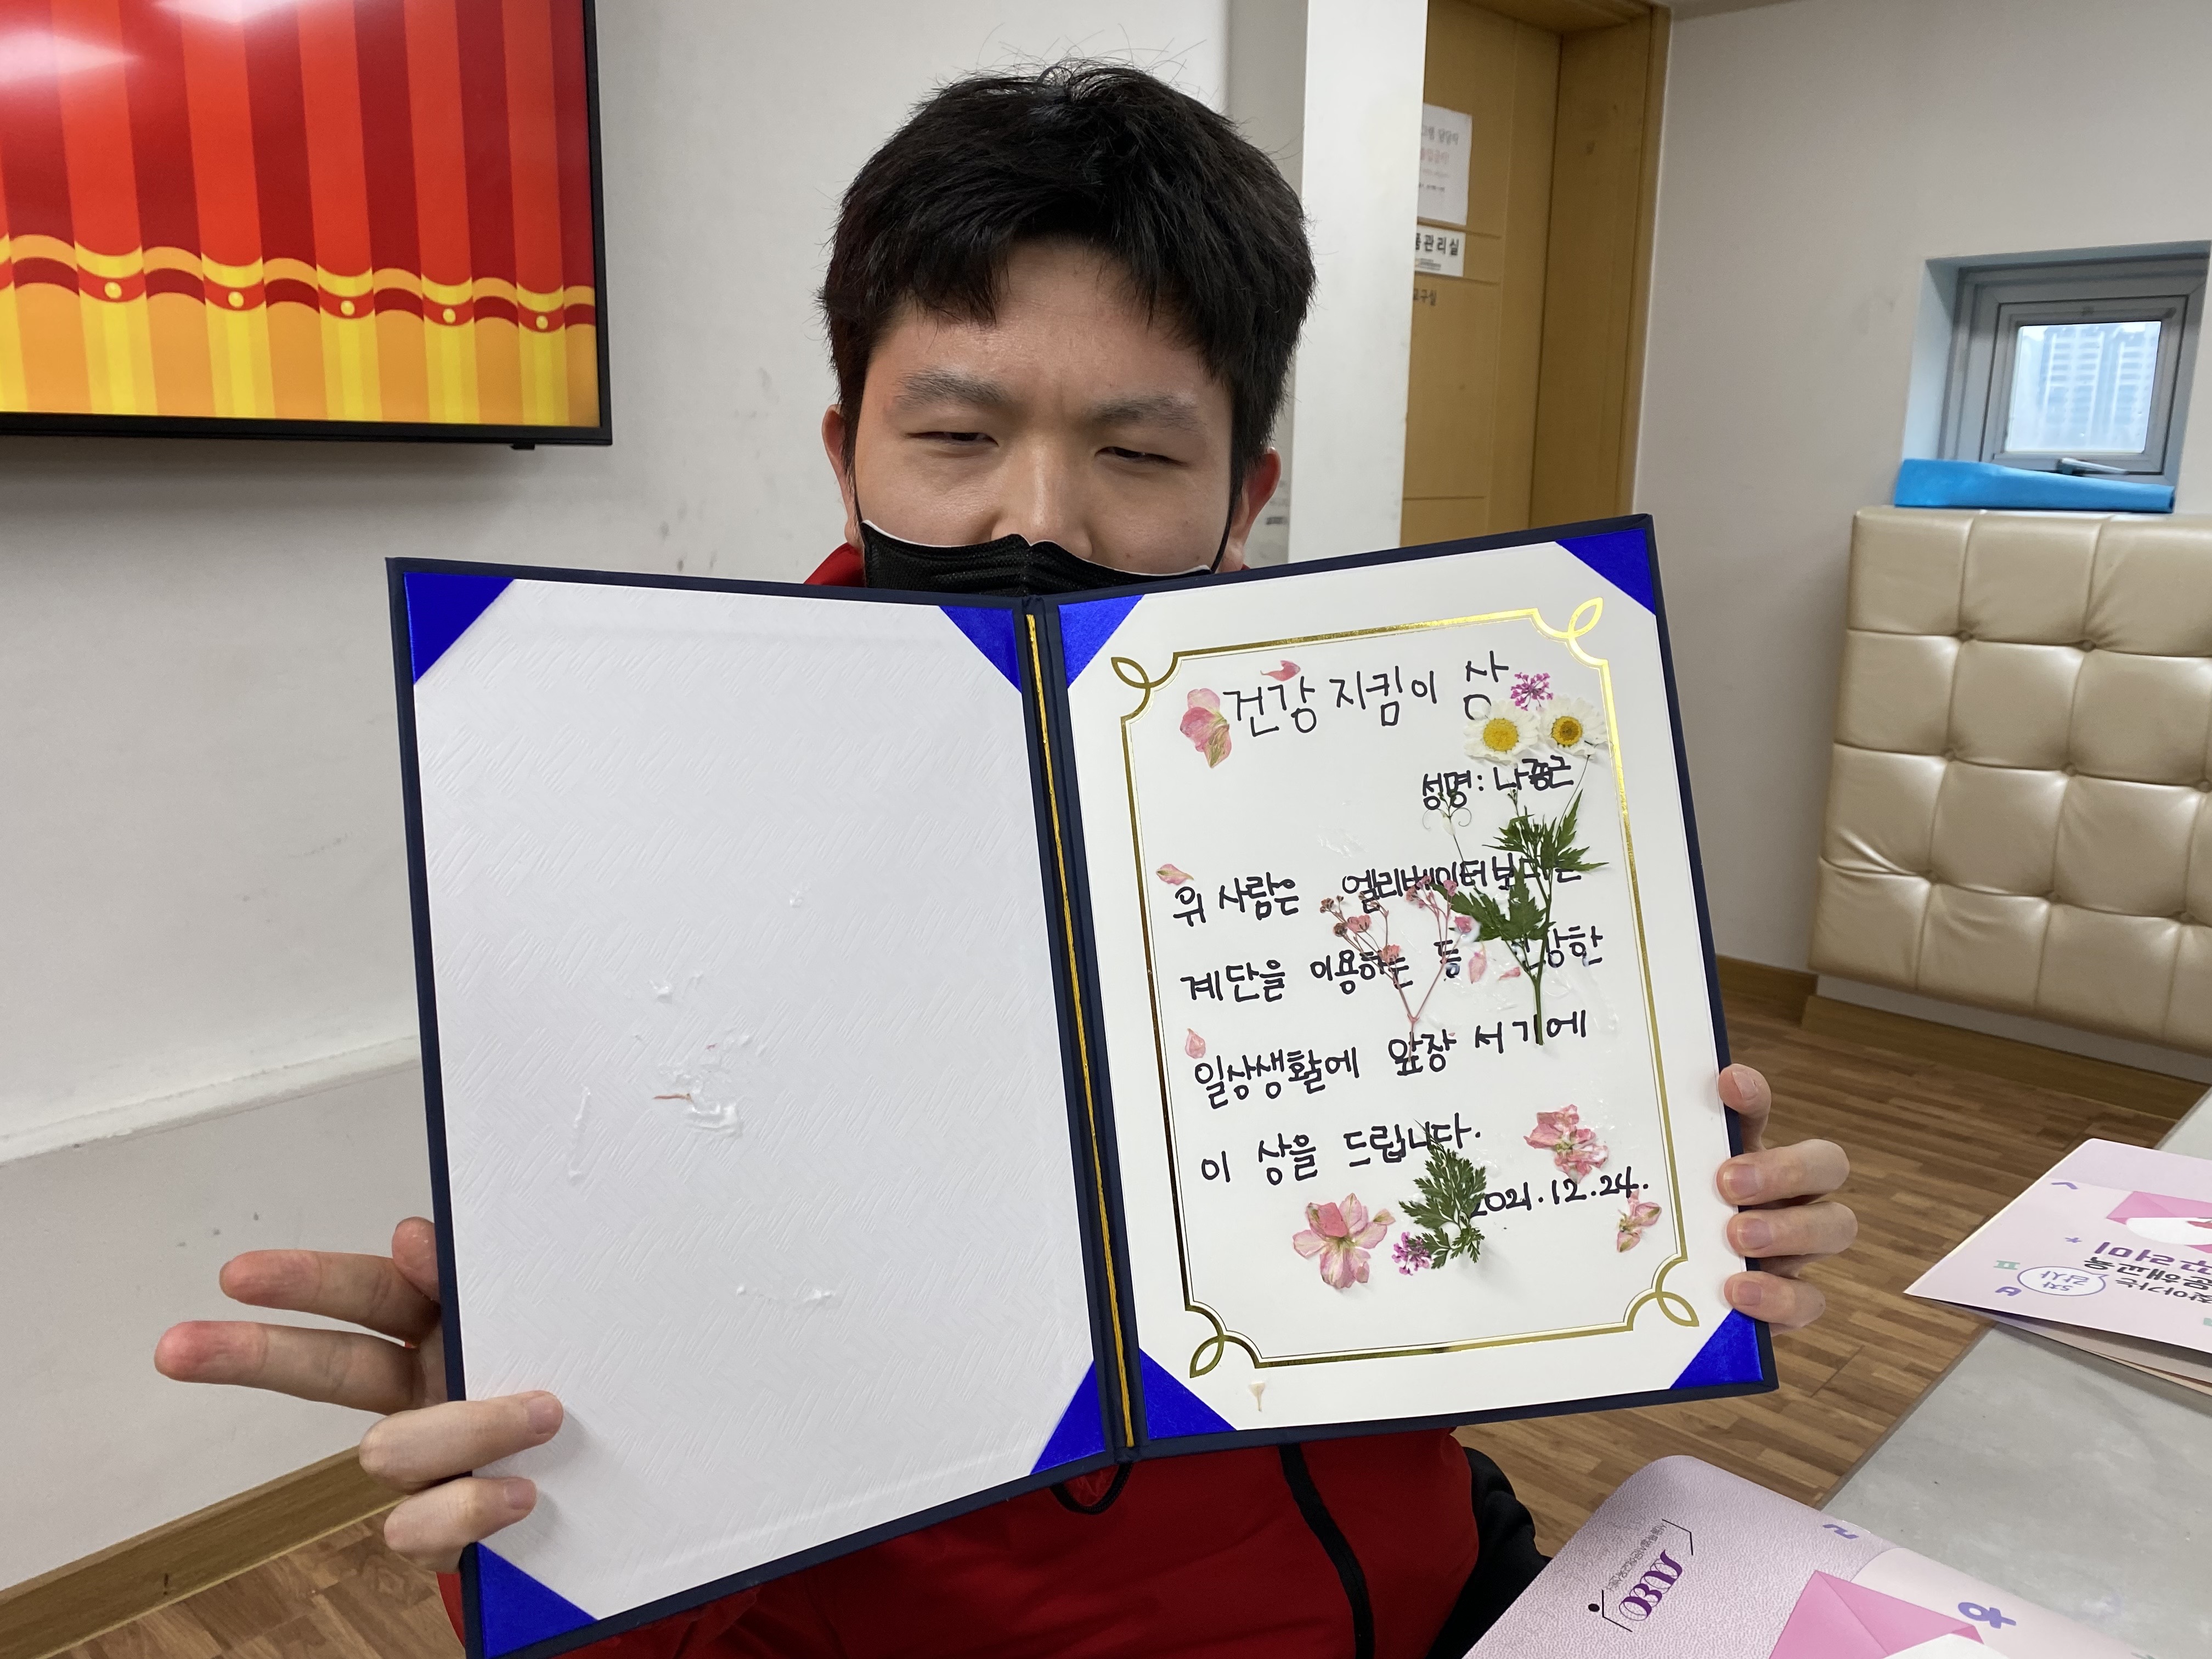 건강 지킴이 상
성명: 나종근
위 사람은 엘리베이터보다는
계단을 이용하는 등 건강한
일상생활에 앞장 서기에
이 상을 드립니다.
2021.12.24.
품관리실
교구실
찾아가는